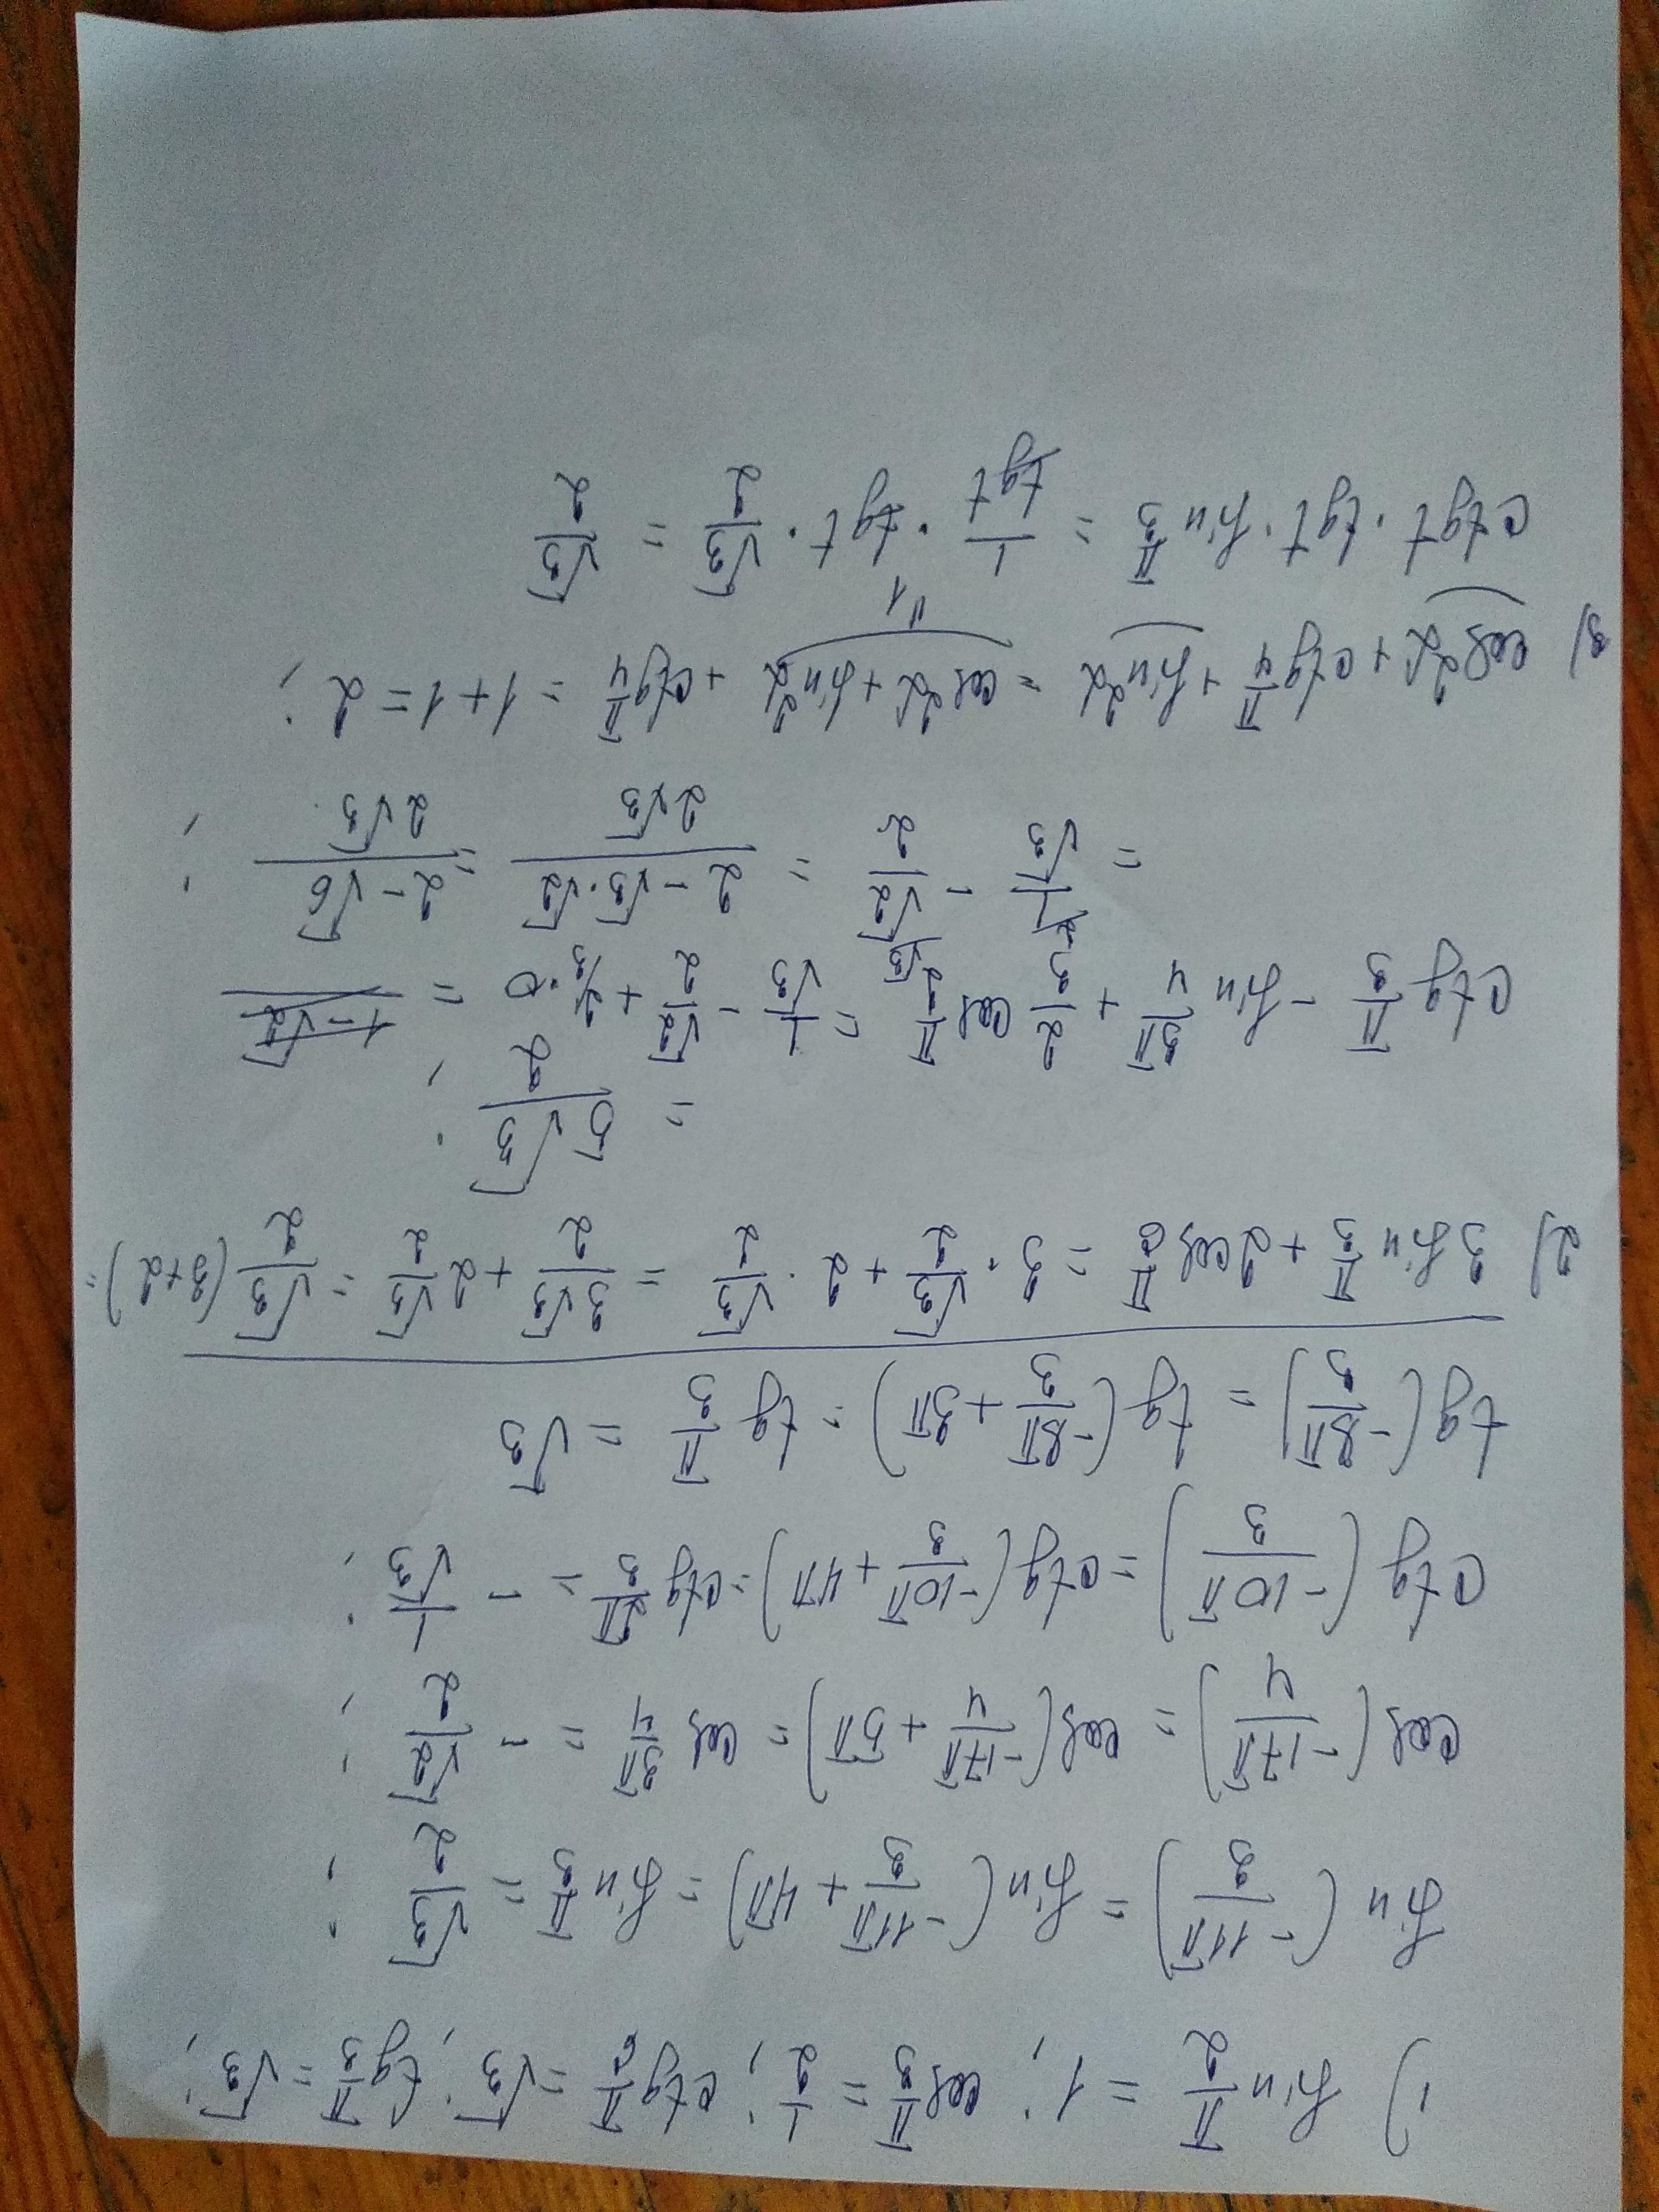 1) sin π/2 = 1; cos π/3 = 1/2; ctg π/6 = √3; tg π/3 = √3;
sin (-11π/3) = sin (-11π/3 + 4π) = sin π/3 = √3/2;
cos (-17π/4) = cos (-17π/4 + 5π) = cos 3π/4 = - √2/2;
ctg (-10π/3) = ctg (-10π/3 + 4π) = ctg 2π/3 = - 1/√3;
tg (-8π/3) = tg (-8π/3 + 3π) = tg π/3 = √3
2) 3 sin π/3 + 2 cos π/6 = 3 · √3/2 + 2 · √3/2 = 3√3/2 + 2 √3/2 = √3/2 (3+2) =
= 5√3/2;
ctg π/3 - sin 3π/4 + 2/3 cos π/2 = 1/√3 - √2/2 + 2/3 · 0 =
= 1/√3 - √2/2 = (2 - √3 · √2)/(2√3) = (2 - √6)/(2√3);
3) cos²α + ctg π/4 + sin²α = cos²α + sin²α + ctg π/4 = 1 + 1 = 2;
"1
ctg t · tg t · sin π/3 = 1/tg t · tg t · √3/2 = √3/2